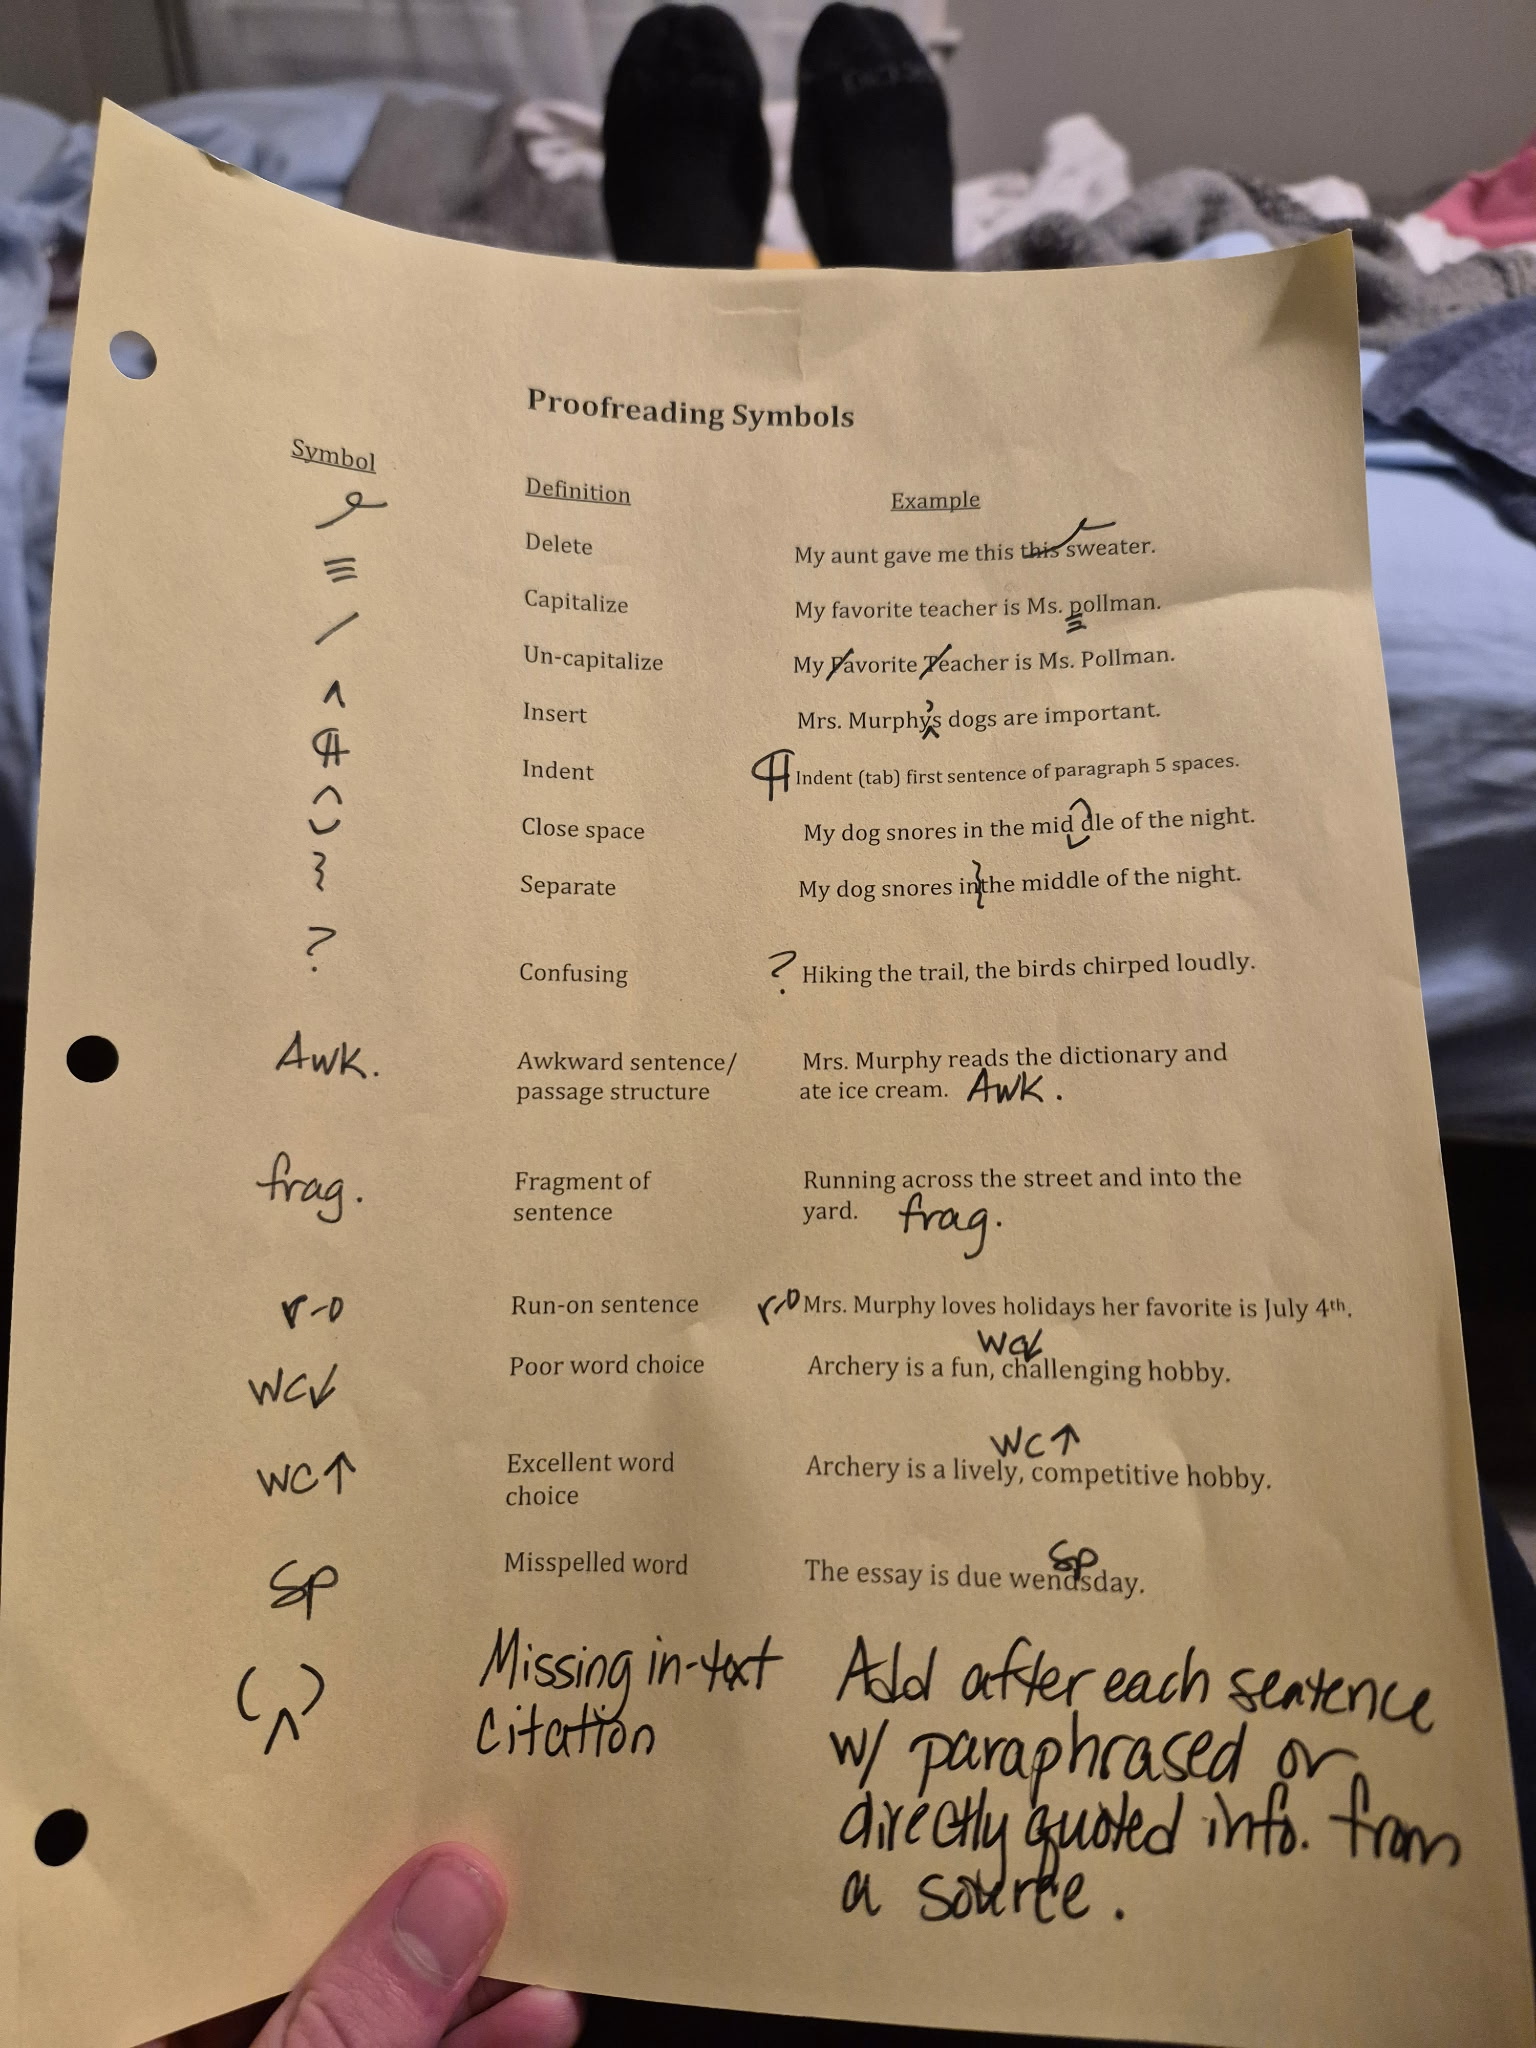 Proofreading Symbols
Symbol Definition Example
Delete My aunt gave me this this sweater.
≡ Capitalize My favorite teacher is Ms. pollman.
/ Un-capitalize My Favorite Teacher is Ms. Pollman.
^ Insert Mrs. Murphy's dogs are important.
¶ Indent ¶ Indent (tab) first sentence of paragraph 5 spaces.
Close space My dog snores in the mid dle of the night.
} Separate My dog snores in}the middle of the night.
? Confusing ? Hiking the trail, the birds chirped loudly.
Awk. Awkward sentence/ Mrs. Murphy reads the dictionary and
passage structure ate ice cream. Awk.
frag. Fragment of Running across the street and into the
sentence yard. frag.
r-o Run-on sentence r-o Mrs. Murphy loves holidays her favorite is July 4th.
WC↓
WC↓ Poor word choice Archery is a fun, challenging hobby.
WC↑
WC↑ Excellent word Archery is a lively, competitive hobby.
choice
sp
sp Misspelled word The essay is due wendsday.
(^) Missing in-text Add after each sentence
citation w/ paraphrased or
directly quoted info. from
a source.